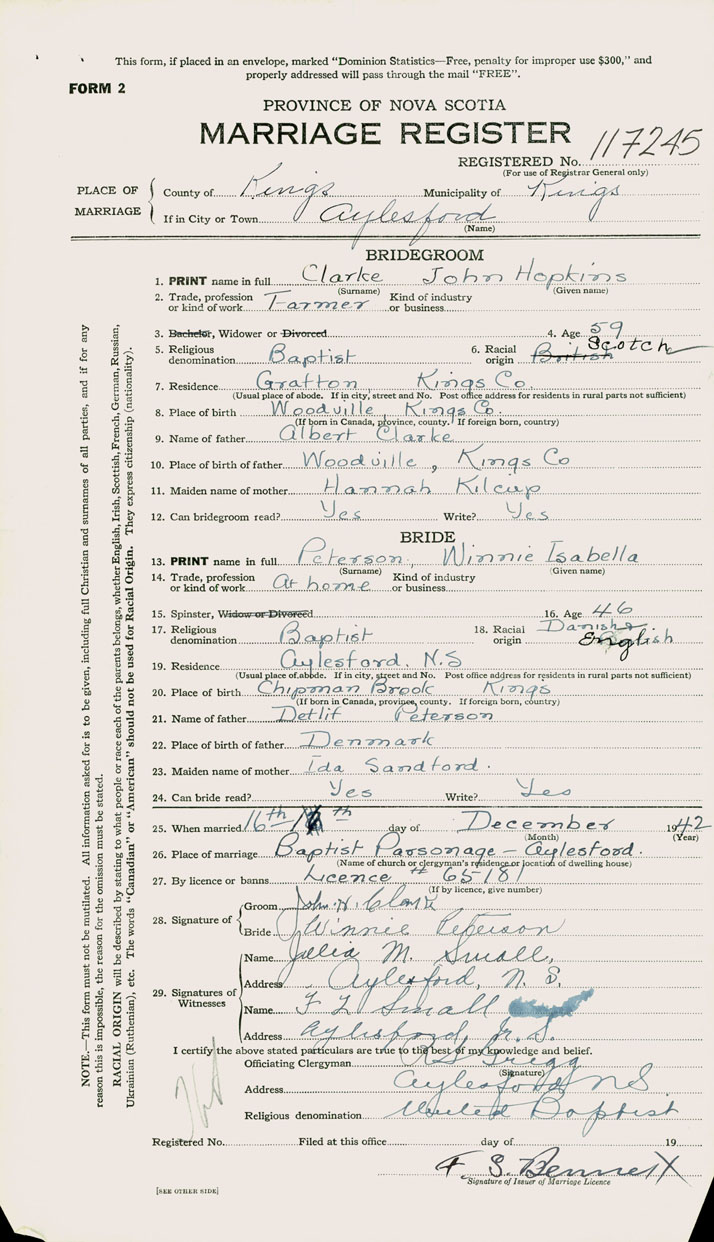 This form, if placed in an envelope, marked “Dominion Statistics—Free, penalty for improper use $300,” and
properly addressed will pass through the mail “FREE”.
FORM 2
PROVINCE OF NOVA SCOTIA
MARRIAGE REGISTER
REGISTERED No. 117245
(For use of Registrar General only)
PLACE OF MARRIAGE
County of Kings Municipality of Kings
If in City or Town Aylesford
(Name)
BRIDEGROOM
1. PRINT name in full Clarke John Hopkins
(Surname) (Given name)
2. Trade, profession or kind of work Farmer Kind of industry or business
3. Bachelor, Widower or Divorced 4. Age 59
5. Religious denomination Baptist 6. Racial origin British Scotch
7. Residence Grafton Kings Co.
(Usual place of abode. If in city, street and No. Post office address for residents in rural parts not sufficient)
8. Place of birth Woodville Kings Co.
(If born in Canada, province, county. If foreign born, country)
9. Name of father Albert Clarke
10. Place of birth of father Woodville, Kings Co
11. Maiden name of mother Hannah Kilcup
12. Can bridegroom read? Yes Write? Yes
BRIDE
13. PRINT name in full Peterson, Winnie Isabella
(Surname) (Given name)
14. Trade, profession or kind of work At home Kind of industry or business
15. Spinster, Widow or Divorced 16. Age 46
17. Religious denomination Baptist 18. Racial origin Danish English
19. Residence Aylesford. N.S
(Usual place of abode. If in city, street and No. Post office address for residents in rural parts not sufficient)
20. Place of birth Chipman Brook Kings
(If born in Canada, province, county. If foreign born, country)
21. Name of father Detlif Peterson
22. Place of birth of father Denmark
23. Maiden name of mother Ida Sandford.
24. Can bride read? Yes Write? Yes
25. When married 16th day of December 1942
(Month) (Year)
26. Place of marriage Baptist Parsonage - Aylesford.
(Name of church or clergyman's residence or location of dwelling house)
27. By licence or banns Licence # 65181
(If by licence, give number)
28. Signature of
Groom John H. Clark
Bride Winnie Peterson
29. Signatures of Witnesses
Name Julia M. Small,
Address Aylesford, N. S.
Name F L Small
Address Aylesford, N. S.
I certify the above stated particulars are true to the best of my knowledge and belief.
Officiating Clergyman Gregg
(Signature)
Address Aylesford NS
Religious denomination United Baptist
Registered No. Filed at this office day of 19
F. S. Bennett
Signature of Issuer of Marriage Licence
[SEE OTHER SIDE]
NOTE.—This form must not be mutilated. All information asked for is to be given, including full Christian and surnames of all parties, and if for any
reason this is impossible, the reason for the omission must be stated.
RACIAL ORIGIN will be described by stating to what people or race each of the parents belongs, whether English, Irish, Scottish, French, German, Russian,
Ukrainian (Ruthenian), etc. The words “Canadian” or “American” should not be used for Racial Origin. They express citizenship (nationality).